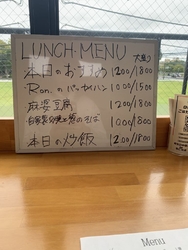 LUNCH·MENU
大盛り
本日のおすすめ 1200/1800
・Ron.のパッカイハン 1000/1500
麻婆豆腐 1200/1800
そば 1000/1800
本日の炒飯 1200/1800
Menu